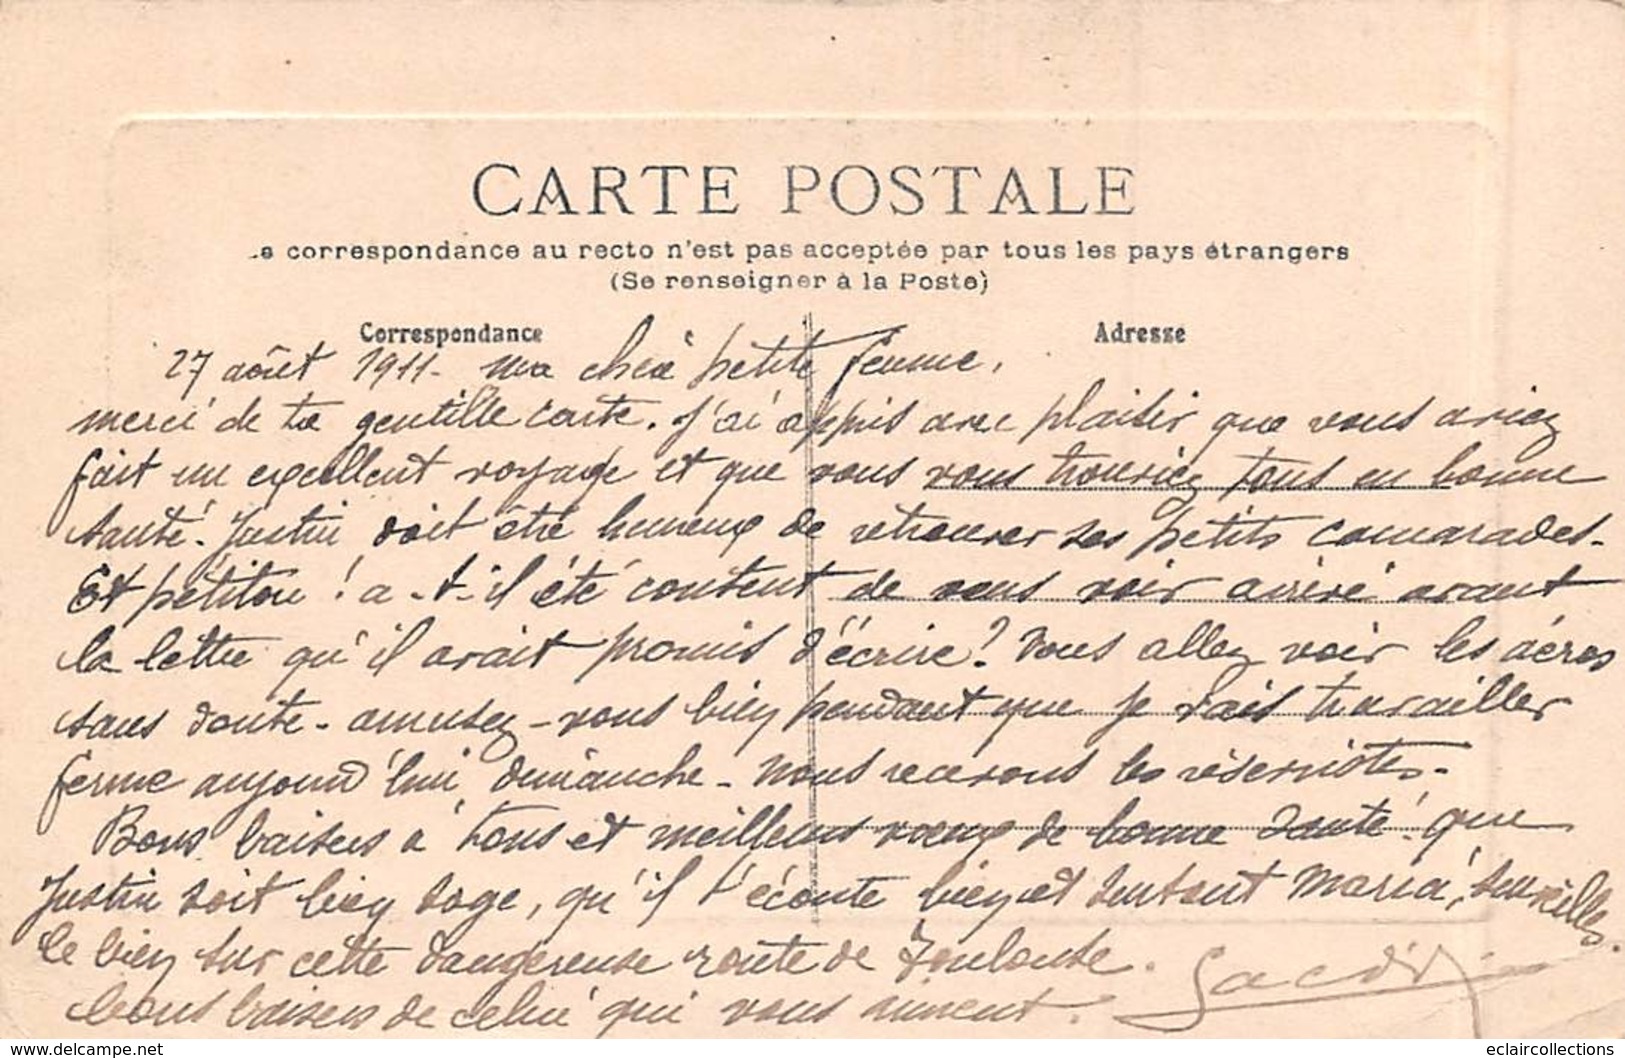 CARTE POSTALE
correspondance au recto n'est pas acceptée par tous les pays étrangers
(Se renseigner à la Poste)
Correspondance
Adresse
27 août 1911. Ma chère petite femme,
merci de ta gentille carte. J'ai appris avec plaisir que vous aviez
fait un excellent voyage et que vous vous trouviez tous en bonne
santé. Justin doit être heureux de retrouver ses petits camarades.
Et pétitou ! a-t-il été content de vous voir arrivé avant
la lettre qu'il avait promis d'écrire? Vous allez voir les aéros
sans doute - amusez-vous bien pendant que je vais travailler
ferme aujourd'hui dimanche - nous recevons les réservistes.
Bons baisers à tous et meilleurs voeux de bonne santé. que
Justin soit bien sage, qu'il t'écoute bien et surtout Maria, surveillez
le bien sur cette dangereuse route de Toulouse.
bons baisers de celui qui vous aiment.
eclaircollections